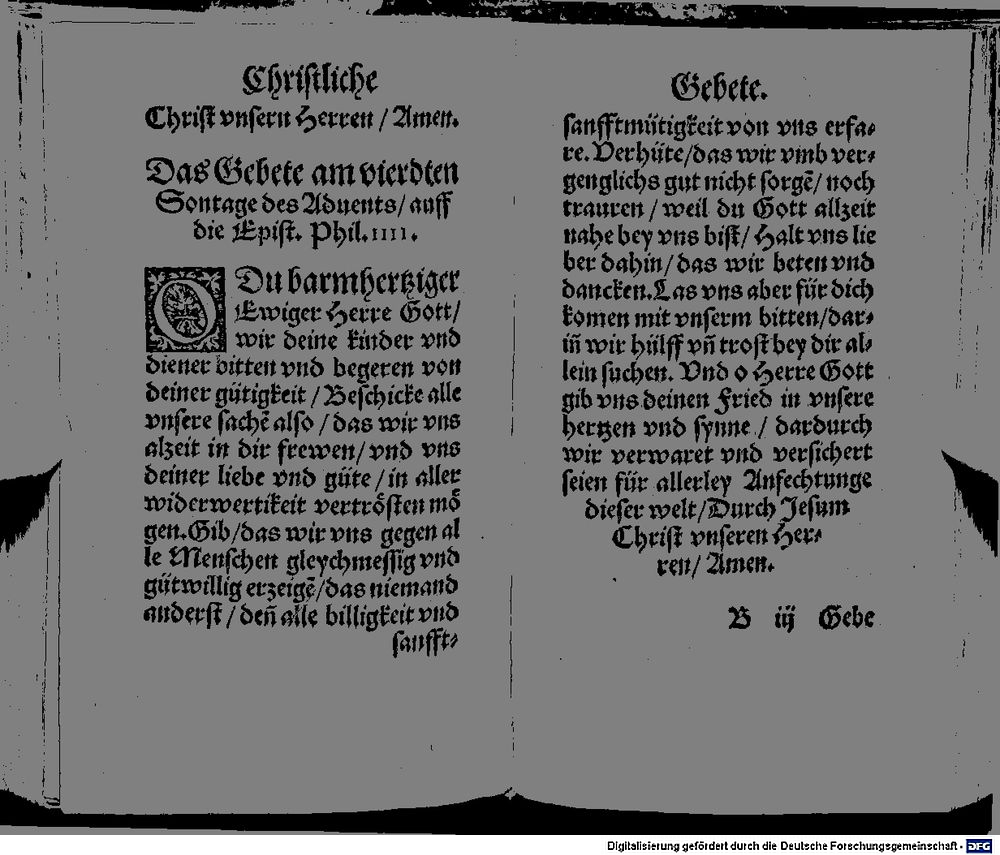 Christliche
Christ vnsern Herren / Amen.
Das Gebete am vierdten
Sontage des Aduents / auff
die Epist. Phil. IIII.
O Du barmhertziger
Ewiger Herre Gott /
wir deine kinder vnd
diener bitten vnd begeren von
deiner gütigkeit / Beschicke alle
vnsere sachē also / das wir vns
alzeit in dir frewen / vnd vns
deiner liebe vnd güte / in aller
widerwertikeit vertrösten mö
gen. Gib / das wir vns gegen al
le Menschen gleychmessig vnd
gütwillig erzeigē / das niemand
anderst / deñ alle billigkeit vnd
sanfft⸗
Gebete.
sanfftmütigkeit von vns erfa⸗
re. Verhüte / das wir vmb ver⸗
genglichs gut nicht sorgē / noch
trauren / weil du Gott allzeit
nahe bey vns bist / Halt vns lie
ber dahin / das wir beten vnd
dancken. Las vns aber für dich
komen mit vnserm bitten / dar⸗
iñ wir hülff vñ trost bey dir al⸗
lein suchen. Vnd o Herre Gott
gib vns deinen Fried in vnsere
hertzen vnd synne / dardurch
wir verwaret vnd versichert
seien für allerley Anfechtunge
dieser welt / Durch Jesum
Christ vnseren Her⸗
ren / Amen.
B iij Gebe
Digitalisierung gefördert durch die Deutsche Forschungsgemeinschaft - DFG